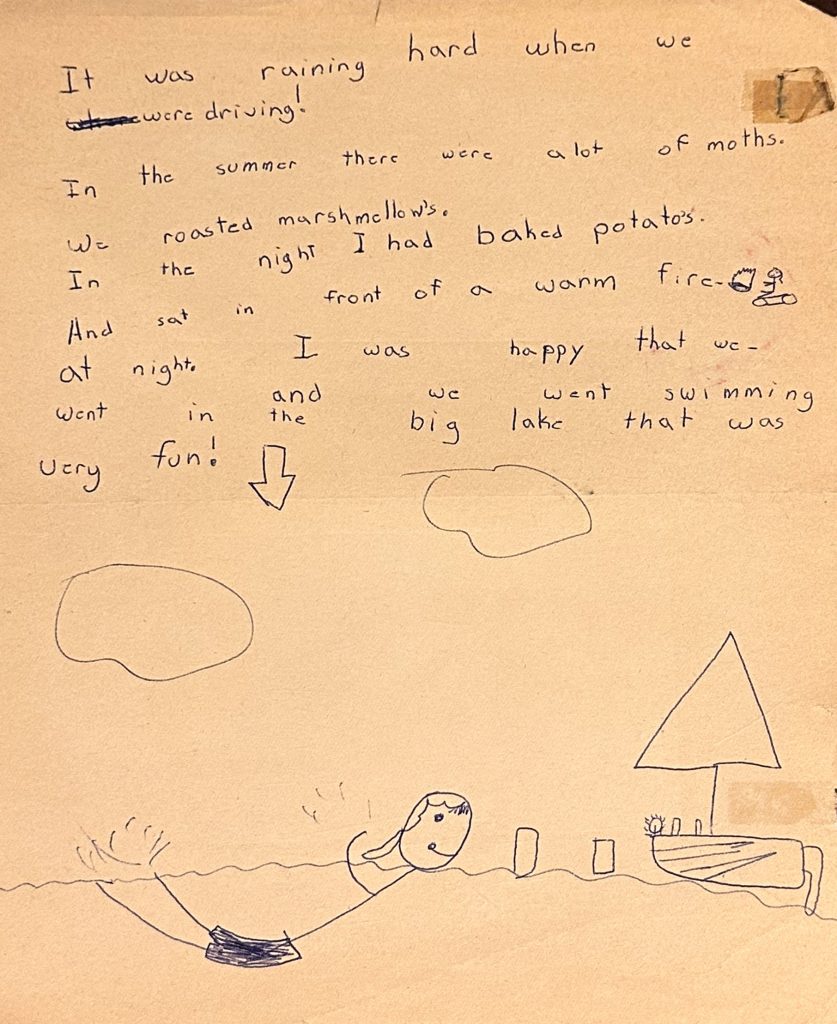 It was raining hard when we
were driving!
In the summer there were alot of moths.
We roasted marshmellow's.
In the night I had baked potato's.
And sat in front of a warm fire-
at night. I was happy that we-
went in and we went swimming
in the big lake that was
very fun!